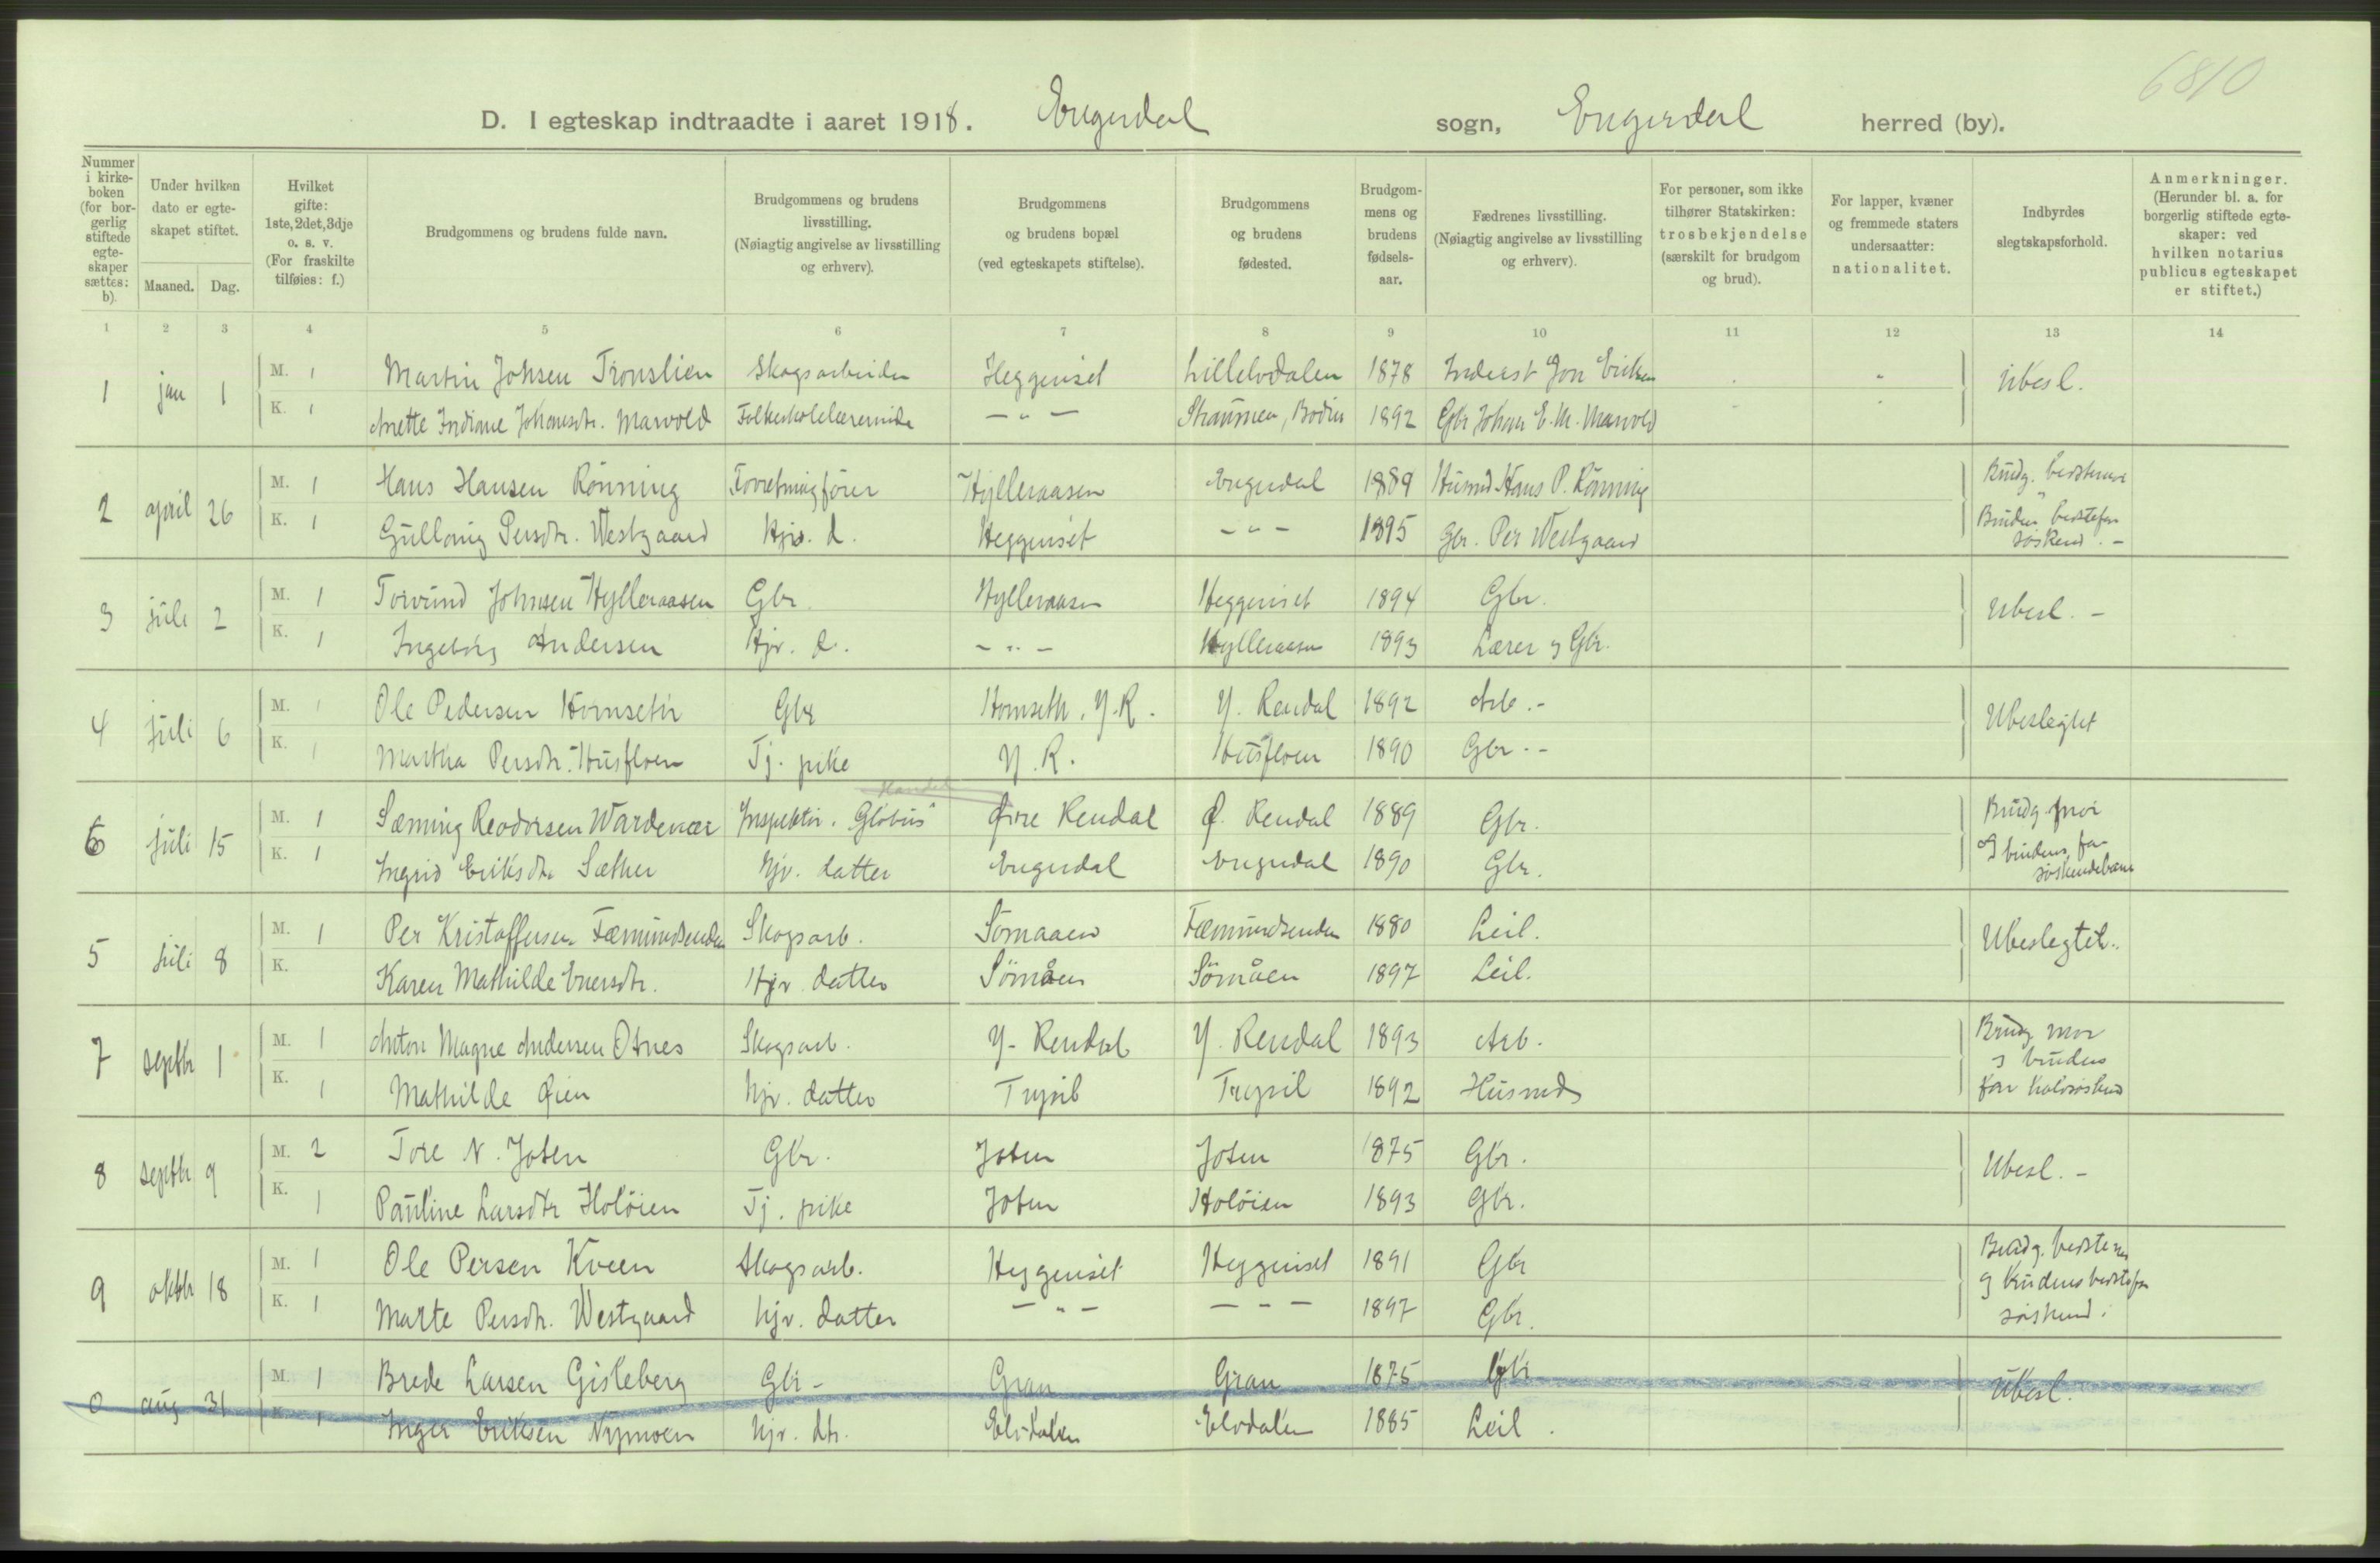 6810
D. I egteskap indtraadte i aaret 1918. Engerdal sogn, Engerdal herred (by).
Nummer i kirke- boken (for bor- gerlig stiftede egte- skaper sættes: b).
Under hvilken dato er egte- skapet stiftet.
Maaned. Dag.
Hvilket gifte: 1ste, 2det, 3dje o. s. v. (For fraskilte tilføies: f.)
Brudgommens og brudens fulde navn.
Brudgommens og brudens livsstilling. (Nøiagtig angivelse av livsstilling og erhverv).
Brudgommens og brudens bopæl (ved egteskapets stiftelse).
Brudgommens og brudens fødested.
Brudgom- mens og brudens fødsels- aar.
Fædrenes livsstilling. (Nøiagtig angivelse av livsstilling og erhverv).
For personer, som ikke tilhører Statskirken: trosbekjendelse (særskilt for brudgom og brud).
For lapper, kvæner og fremmede staters undersaatter: nationalitet.
Indbyrdes slegtskapsforhold.
Anmerkninger. (Herunder bl. a. for borgerlig stiftede egte- skaper: ved hvilken notarius publicus egteskapet er stiftet.)
1 2 3 4 5 6 7 8 9 10 11 12 13 14
1 jan 1 M. 1 Martin Johsen Tronslien Skogsarbeider Heggeriset Lillelvdalen 1878 Inderst Jon Eriksen Ubesl.
K. 1 Anette Indiane Johansdtr. Marvold Folkeskolelærerinde — " — Straumen, Bodin 1892 Gbr Johan E. M. Marvold
2 april 26 M. 1 Hans Hansen Rønning Forretningfører Hylleraasen Engerdal 1889 Husmd Hans P. Rønning Brudg. bedstemor
K. 1 Gullaug Persdtr. Westgaard Hjv. d. Heggeriset — " — 1895 Gbr. Per Westgaard Brudens bedstefar søskend. —
3 juli 2 M. 1 Torvund Johnsen Hylleraasen Gbr. Hylleraasen Heggeriset 1894 Gbr. Ubesl. —
K. 1 Ingeborg Andersen Hjv. d. — " — Hylleraasen 1893 Lærer og Gbr.
4 juli 6 M. 1 Ole Pedersen Hornseth Gbr Hornseth. Y. R. Y. Rendal 1892 Arb. — Ubeslegtet
K. 1 Martha Persdtr. Husfloen Tj. pike Y. R. Husfloen 1890 Gbr. —
Handels
6 juli 15 M. 1 Sæming Reodorsen Wardenær Inspektør. Globus" Øvre Rendal Ø. Rendal 1889 Gbr. Brudg. mor
K. 1 Ingrid Eriksdtr Sæther hjv. datter Engerdal Engerdal 1890 Gbr. og brudens far søskendebarn
5 juli 8 M. 1 Per Kristoffersen Fæmundsenden Skogsarb. Sømaaen Fæmundsenden 1880 Leil. Ubeslegtet.
K. Karen Mathilde Enersdtr. Hjv datter Sømåen Sømåen 1897 Leil.
7 septbr 1 M. 1 Anton Magne Andersen Otnes Skogsarb. Y. Rendal Y. Rendal 1893 Arb. Brudg mor
K. 1 Mathilde Øien hjv. datter Trysil Trysil 1892 Husmd og brudens far halvsøskend
8 septbr 9 M. 2 Tore N. Joten Gbr. Joten Joten 1875 Gbr. Ubesl. —
K. 1 Pauline Larsdtr Holøien Tj. pike Joten Holøien 1893 Gbr.
9 oktbr 18 M. 1 Ole Persen Kveen Skogsarb. Heggeriset Heggeriset 1891 Gbr Brudg. bedstemor
K. 1 Marte Persdtr. Westgaard hjv. datter — " — — " — 1897 Gbr. og brudens bedstefar søskend.
0 aug 31 M. 1 Brede Larsen Gisleberg Gbr — Gran Gran 1875 Gbr Ubesl.
K. 1 Inger Eriksen Nymoen hjv. dtr. Elvdalen Elvdalen 1885 Leil.